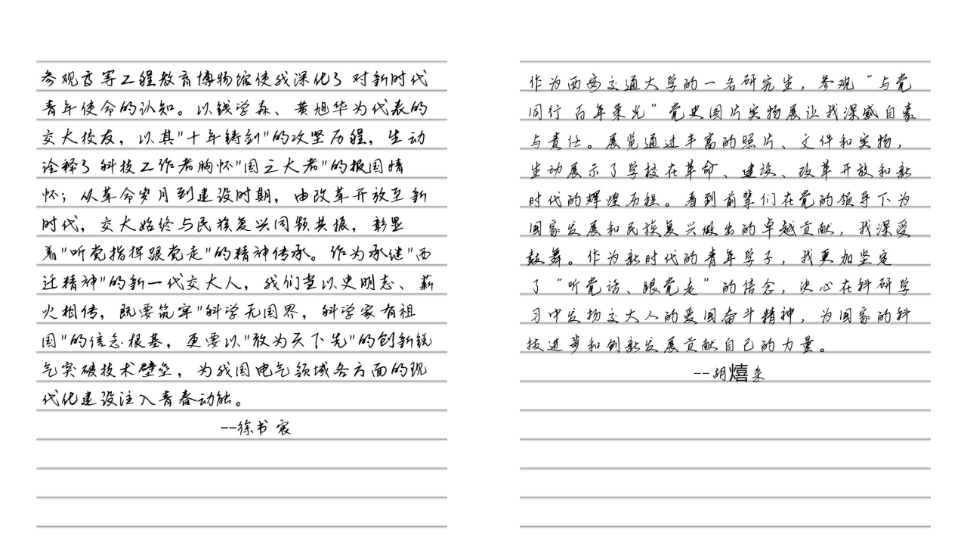 参观高等工程教育博物馆使我深化了对新时代
青年使命的认知。以钱学森、黄旭华为代表的
交大校友，以其"十年铸剑"的攻坚历程，生动
诠释了科技工作者胸怀"国之大者"的报国情
怀；从革命岁月到建设时期，由改革开放至新
时代，交大始终与民族复兴同频共振，彰显
着"听党指挥跟党走"的精神传承。作为承继"西
迁精神"的新一代交大人，我们当以史明志、薪
火相传，既要筑牢"科学无国界，科学家有祖
国"的信念根基，更要以"敢为天下先"的创新锐
气突破技术壁垒，为我国电气领域各方面的现
代化建设注入青春动能。
--徐书宸
作为西安交通大学的一名研究生，参观“与党
同行 百年荣光”党史图片实物展让我深感自豪
与责任。展览通过丰富的照片、文件和实物，
生动展示了学校在革命、建设、改革开放和新
时代的辉煌历程。看到前辈们在党的领导下为
国家发展和民族复兴做出的卓越贡献，我深受
鼓舞。作为新时代的青年学子，我更加坚定
了“听党话、跟党走”的信念，决心在科研学
习中发扬交大人的爱国奋斗精神，为国家的科
技进步和创新发展贡献自己的力量。
--胡熺来